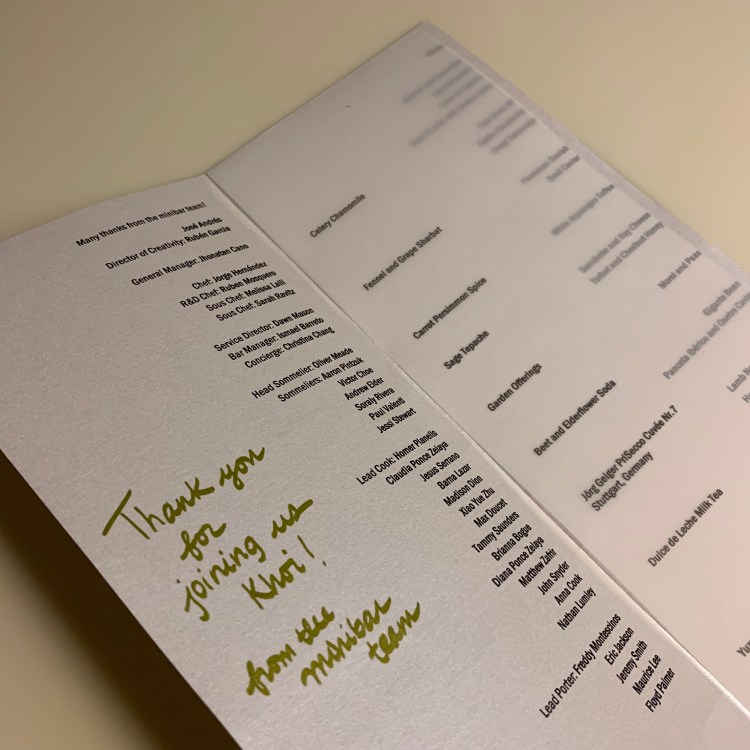 Many thanks from the minibar team!
José Andrés
Director of Creativity: Rubén García
General Manager: Jhonatan Cano
Chef: Jorge Hernández
R&D Chef: Ruben Mosquero
Sous Chef: Melissa Lalli
Sous Chef: Sarah Ravitz
Service Director: Dawn Mason
Bar Manager: Ismael Barreto
Concierge: Christina Chang
Head Sommelier: Oliver Meade
Sommeliers: Aaron Pintzuk
Victor Choe
Andrew Elder
Soraly Rivera
Paul Valenti
Jessi Stewart
Lead Cook: Homer Planells
Claudia Ponce Zelaya
Jesus Serrano
Barna Lazar
Madison Dion
Xiao Yue Zhu
Max Doucet
Tammy Saunders
Brianna Bogue
Diana Ponce Zelaya
Matthew Zafrir
John Snyder
Anna Cook
Nathan Lumley
Lead Porter: Freddy Montescinos
Eric Jackson
Jeremy Smith
Maurice Lee
Floyd Palmer
Thank you
for
joining us
Khoi!
from the
minibar
team
Celery Chamomile
Fennel and Grape Sharbat
Carrot Persimmon Spice
Sage Tepache
Garden Offerings
Beet and Elderflower Soda
Jörg Geiger PriSecco Cuvée Nr.7
Stuttgart, Germany
Dulce de Leche Milk Tea
Morel and